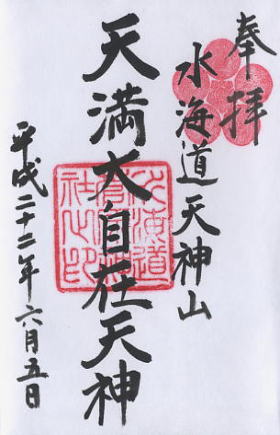 奉拝
水海道天神山
天満大自在天神
平成二十二年六月五日